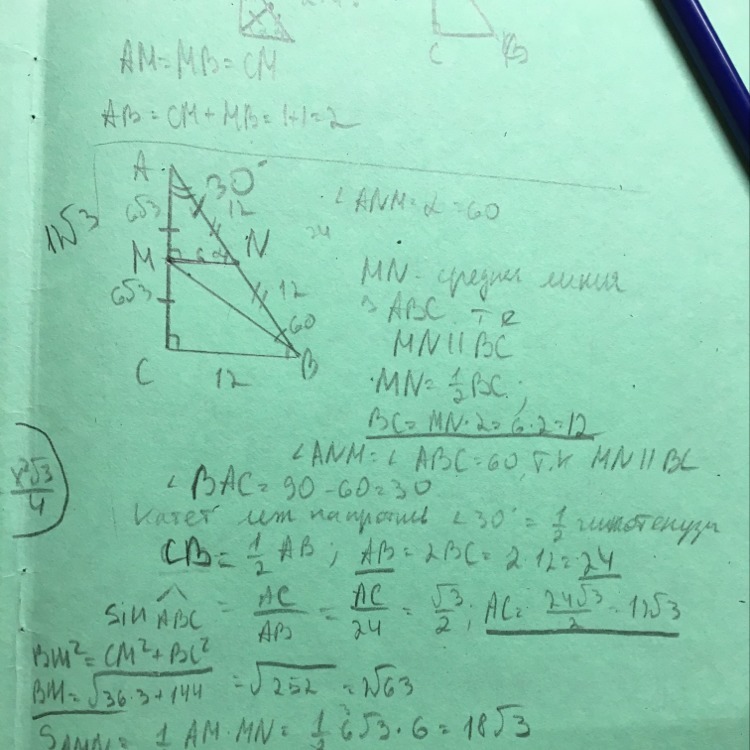 C
B
AM=MB=CM
AB=CM+MB=1+1=2
A
30°
6√3
12
12√3
24
∠ANM=α=60
M
6
N
6√3
12
60
C
12
B
MN- средняя линия
ABC
MN||BC
MN=½BC;
BC=MN·2=6·2=12
∠ANM=∠ABC=60, т.к MN||BC
∠BAC=90-60=30
x²√3/4
Катет леж напротив ∠30°=½ гипотенузы
CB=½AB; AB=2BC=2·12=24
sin ABC=AC/AB=AC/24=√3/2; AC=24√3/2=12√3
BM²=CM²+BC²
BM=√36·3+144=√252=2√63
AM·MN=½6√3·6=18√3